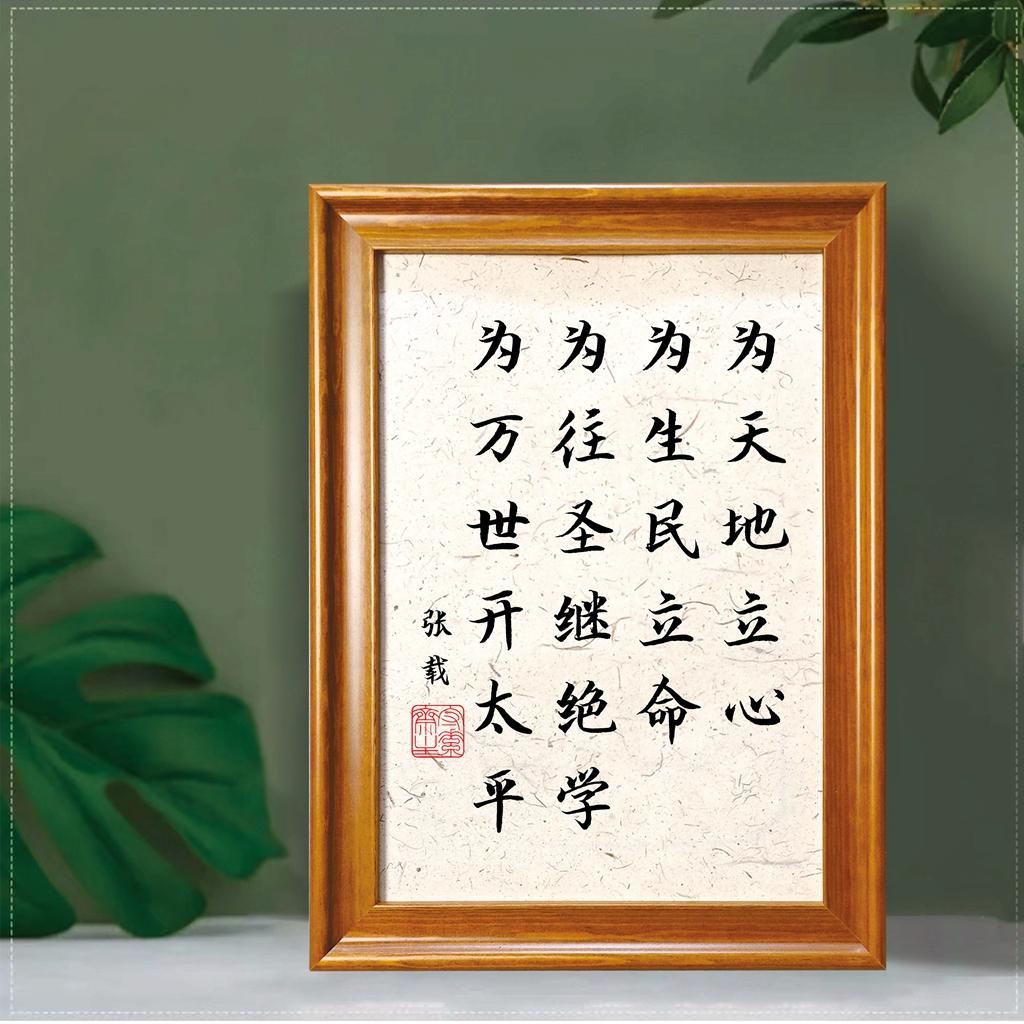 为天地立心
为生民立命
为往圣继绝学
为万世开太平
张载